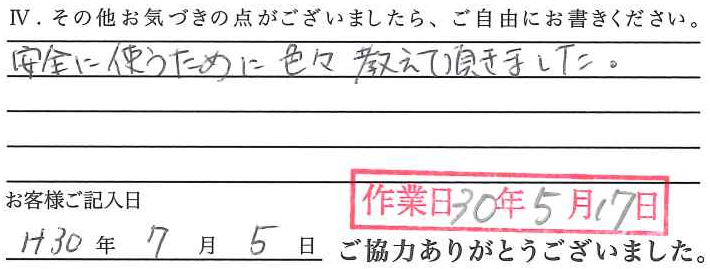 Ⅳ．その他お気づきの点がございましたら、ご自由にお書きください。
安全に使うために色々教えて頂きました。
お客様ご記入日
作業日30年5月17日
H30年7月5日
ご協力ありがとうございました。